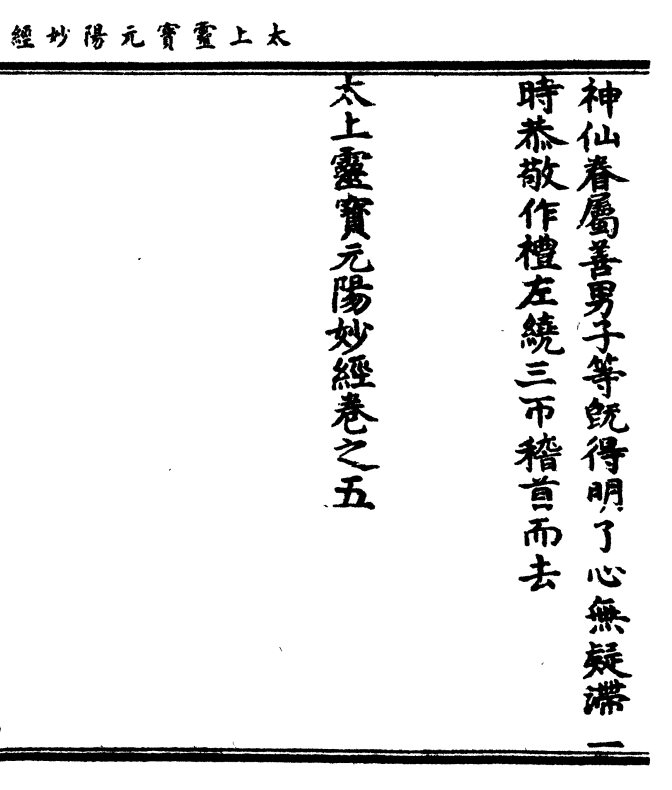 太上靈寶元陽妙經
神仙眷屬善男子等旣得明了心無疑滯一
時恭敬作禮左繞三帀稽首而去
太上靈寶元陽妙經卷之五